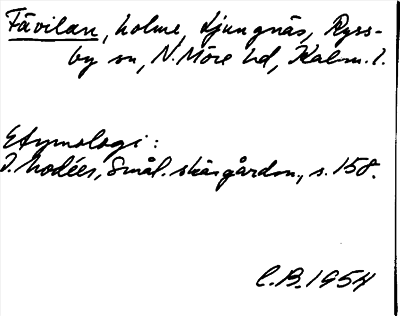 Fävilan, holme, Ljungnäs, Ryss-
by sn, N. Möre hd, Kalm. l.
Etymologi:
I. Modéer, Smål. skärgården, s. 158.
C.B. 1954